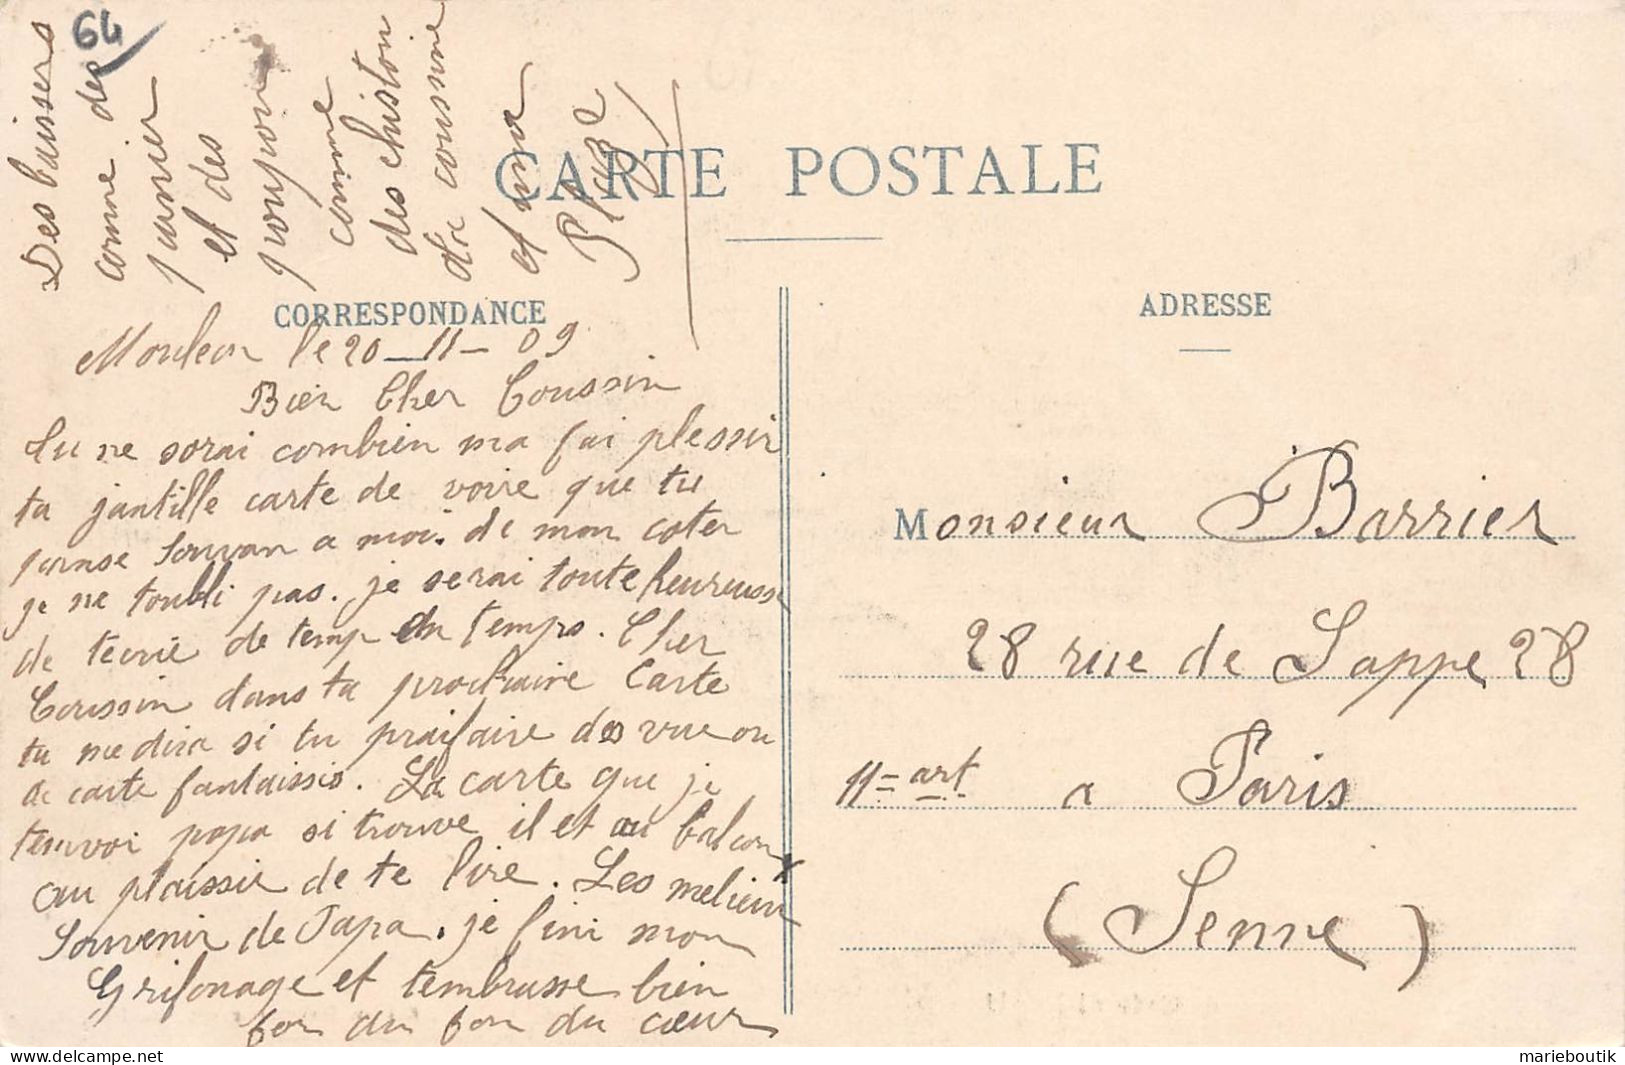 64
Des baisers
comme des
panier
et des
poupon
comme
des chiston
ta coussine
et une
CARTE POSTALE
CORRESPONDANCE
ADRESSE
Mouleon le 20-11-09
Bien Cher Coussin
tu ne sorai combien ma fai plessir
ta jantille carte de voire que tu
panse souvan a moi. de mon coter
je ne toubli pas. je serai toute heureusse
de tecrie de temp en temps. Cher
Coussin dans ta prochaine Carte
tu me dira si tu praifaire des vue ou
de carte fantaissis. La carte que je
tenvoi papa si trouve il et au balcon
au plaissir de te lire. Les melieur
Souvenir de Papa. je fini mon
Grifonage et tembrasse bien
for du fon du cœur
Monsieur Barrier
28 rue de Lappe 28
11= art a Paris
(Senne)
marieboutik
https://www.delcampe.net